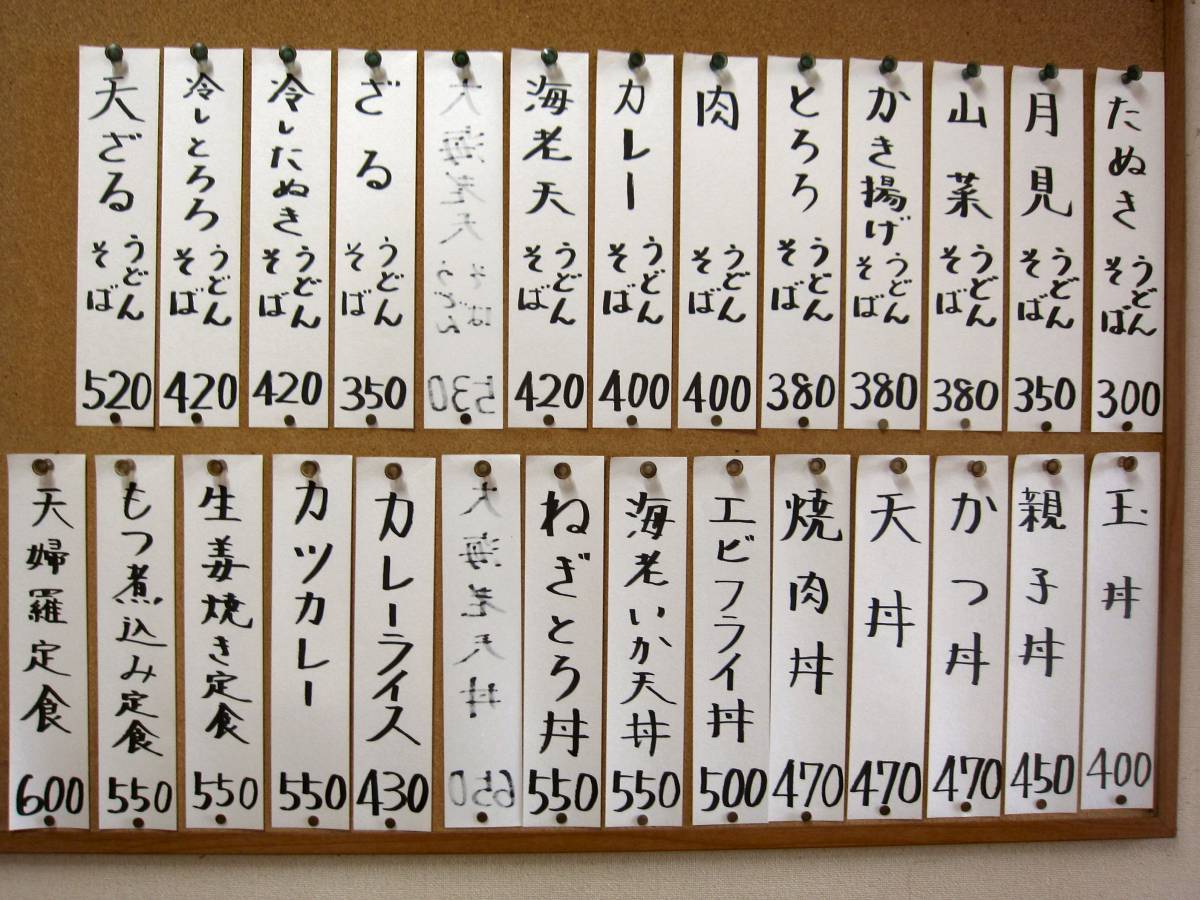 たぬき
うどん
そば
300
月見
うどん
そば
350
山菜
うどん
そば
380
かき揚げ
うどん
そば
380
とろろ
うどん
そば
380
肉
うどん
そば
400
カレー
うどん
そば
400
海老天
うどん
そば
420
大海老天
うどん
そば
530
ざる
うどん
そば
350
冷したぬき
うどん
そば
420
冷しとろろ
うどん
そば
420
天ざる
うどん
そば
520
玉丼
400
親子丼
450
かつ丼
470
天丼
470
焼肉丼
470
エビフライ丼
500
海老いか天丼
550
ねぎとろ丼
550
大海老天丼
650
カレーライス
430
カツカレー
550
生姜焼き定食
550
もつ煮込み定食
550
天婦羅定食
600